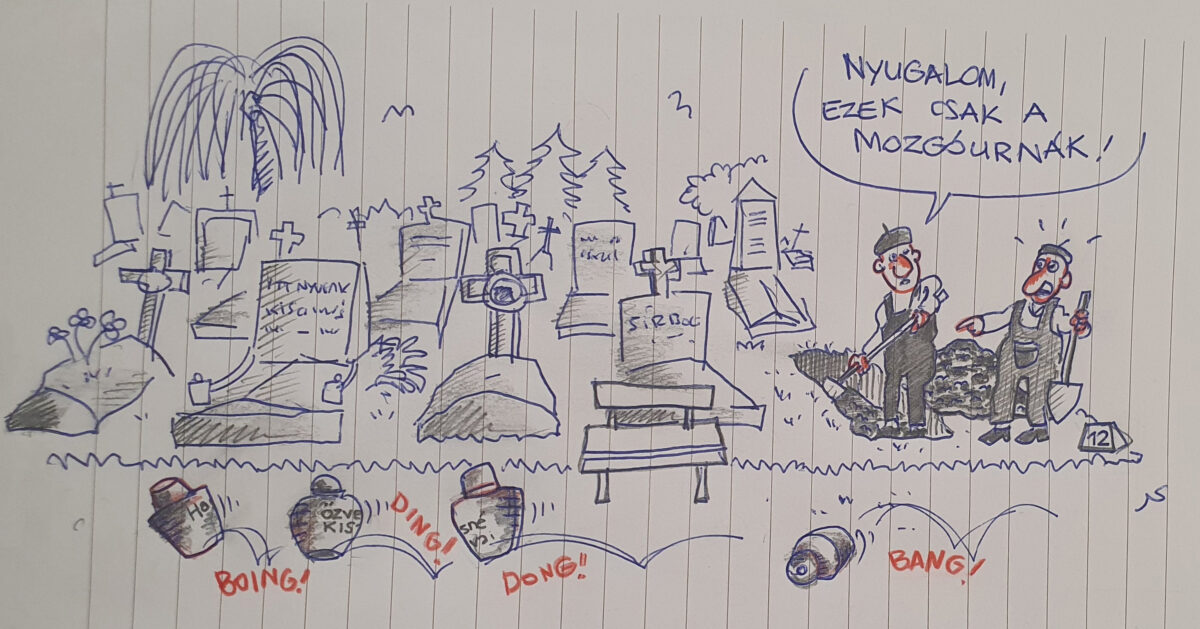 NYUGALOM,
EZEK CSAK A
MOZGÓURNÁK!
SÍRBOL
12
Ho
ÖZVE
KIS
sné
BOING!
DING!
DONG!!
BANG!